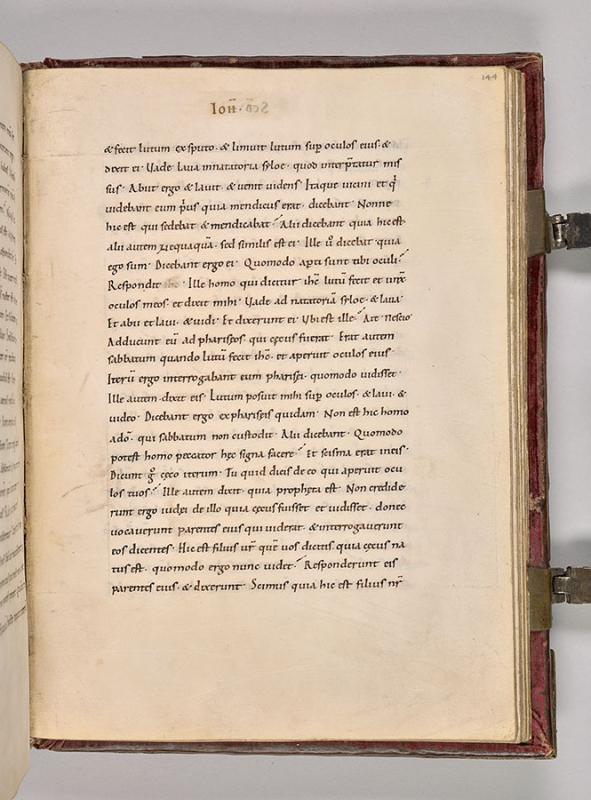 144
Ioh̄.
& fecit lutum ex sputo · & liniuit lutum sup̄ oculos eius · &
dixit ei · Uade laua in natatoria syloe · quod interp̄tatur mis
sus · Abiit ergo & lauit · & uenit uidens · Itaque uicini et q̇
uidebant eum p̄us quia mendicus erat · dicebant · Nonne
hic est qui sedebat & mendicabat · Alii dicebant quia hic est
alii autem nequaquā · sed similis est ei · Ille u̇ dicebat quia
ego sum · Dicebant ergo ei · Quomodo apti sunt tibi oculi
Respondit · Ille homo qui dicitur ihc̄ lutū fecit et unx̄
oculos meos · et dixit mihi · Uade ad natatoriā syloe · & laua ·
Et abii et laui · & uidi · Et dixerunt ei · Ubi est ille · Ait · Nescio
Adducunt eū ad phariseos · qui cęcus fuerat · Erat autem
sabbatum quando lutū fecit ihc̄ · et aperuit oculos eius ·
Iterū ergo interrogabant eum pharisei · quomodo uidisset ·
Ille autem dixit eis · Lutum posuit mihi sup̄ oculos · & laui · &
uideo · Dicebant ergo ex phariseis quidam · Non est hic homo
a dō · qui sabbatum non custodit · Alii dicebant · Quomodo
potest homo peccator hęc signa facere · Et scisma erat in eis ·
Dicunt g̊ cęco iterum · Tu quid dicis de eo qui aperuit ocu
los tuos · Ille autem dixit · quia propheta est · Non credide
runt ergo iudei de illo quia cęcus fuisset et uidisset · donec
uocauerunt parentes eius qui uiderat · & interrogauerunt
eos dicentes · Hic est filius ur̄ quē uos dicitis quia cęcus na
tus est · quomodo ergo nunc uidet · Responderunt eis
parentes eius · & dixerunt · Scimus quia hic est filius nr̄